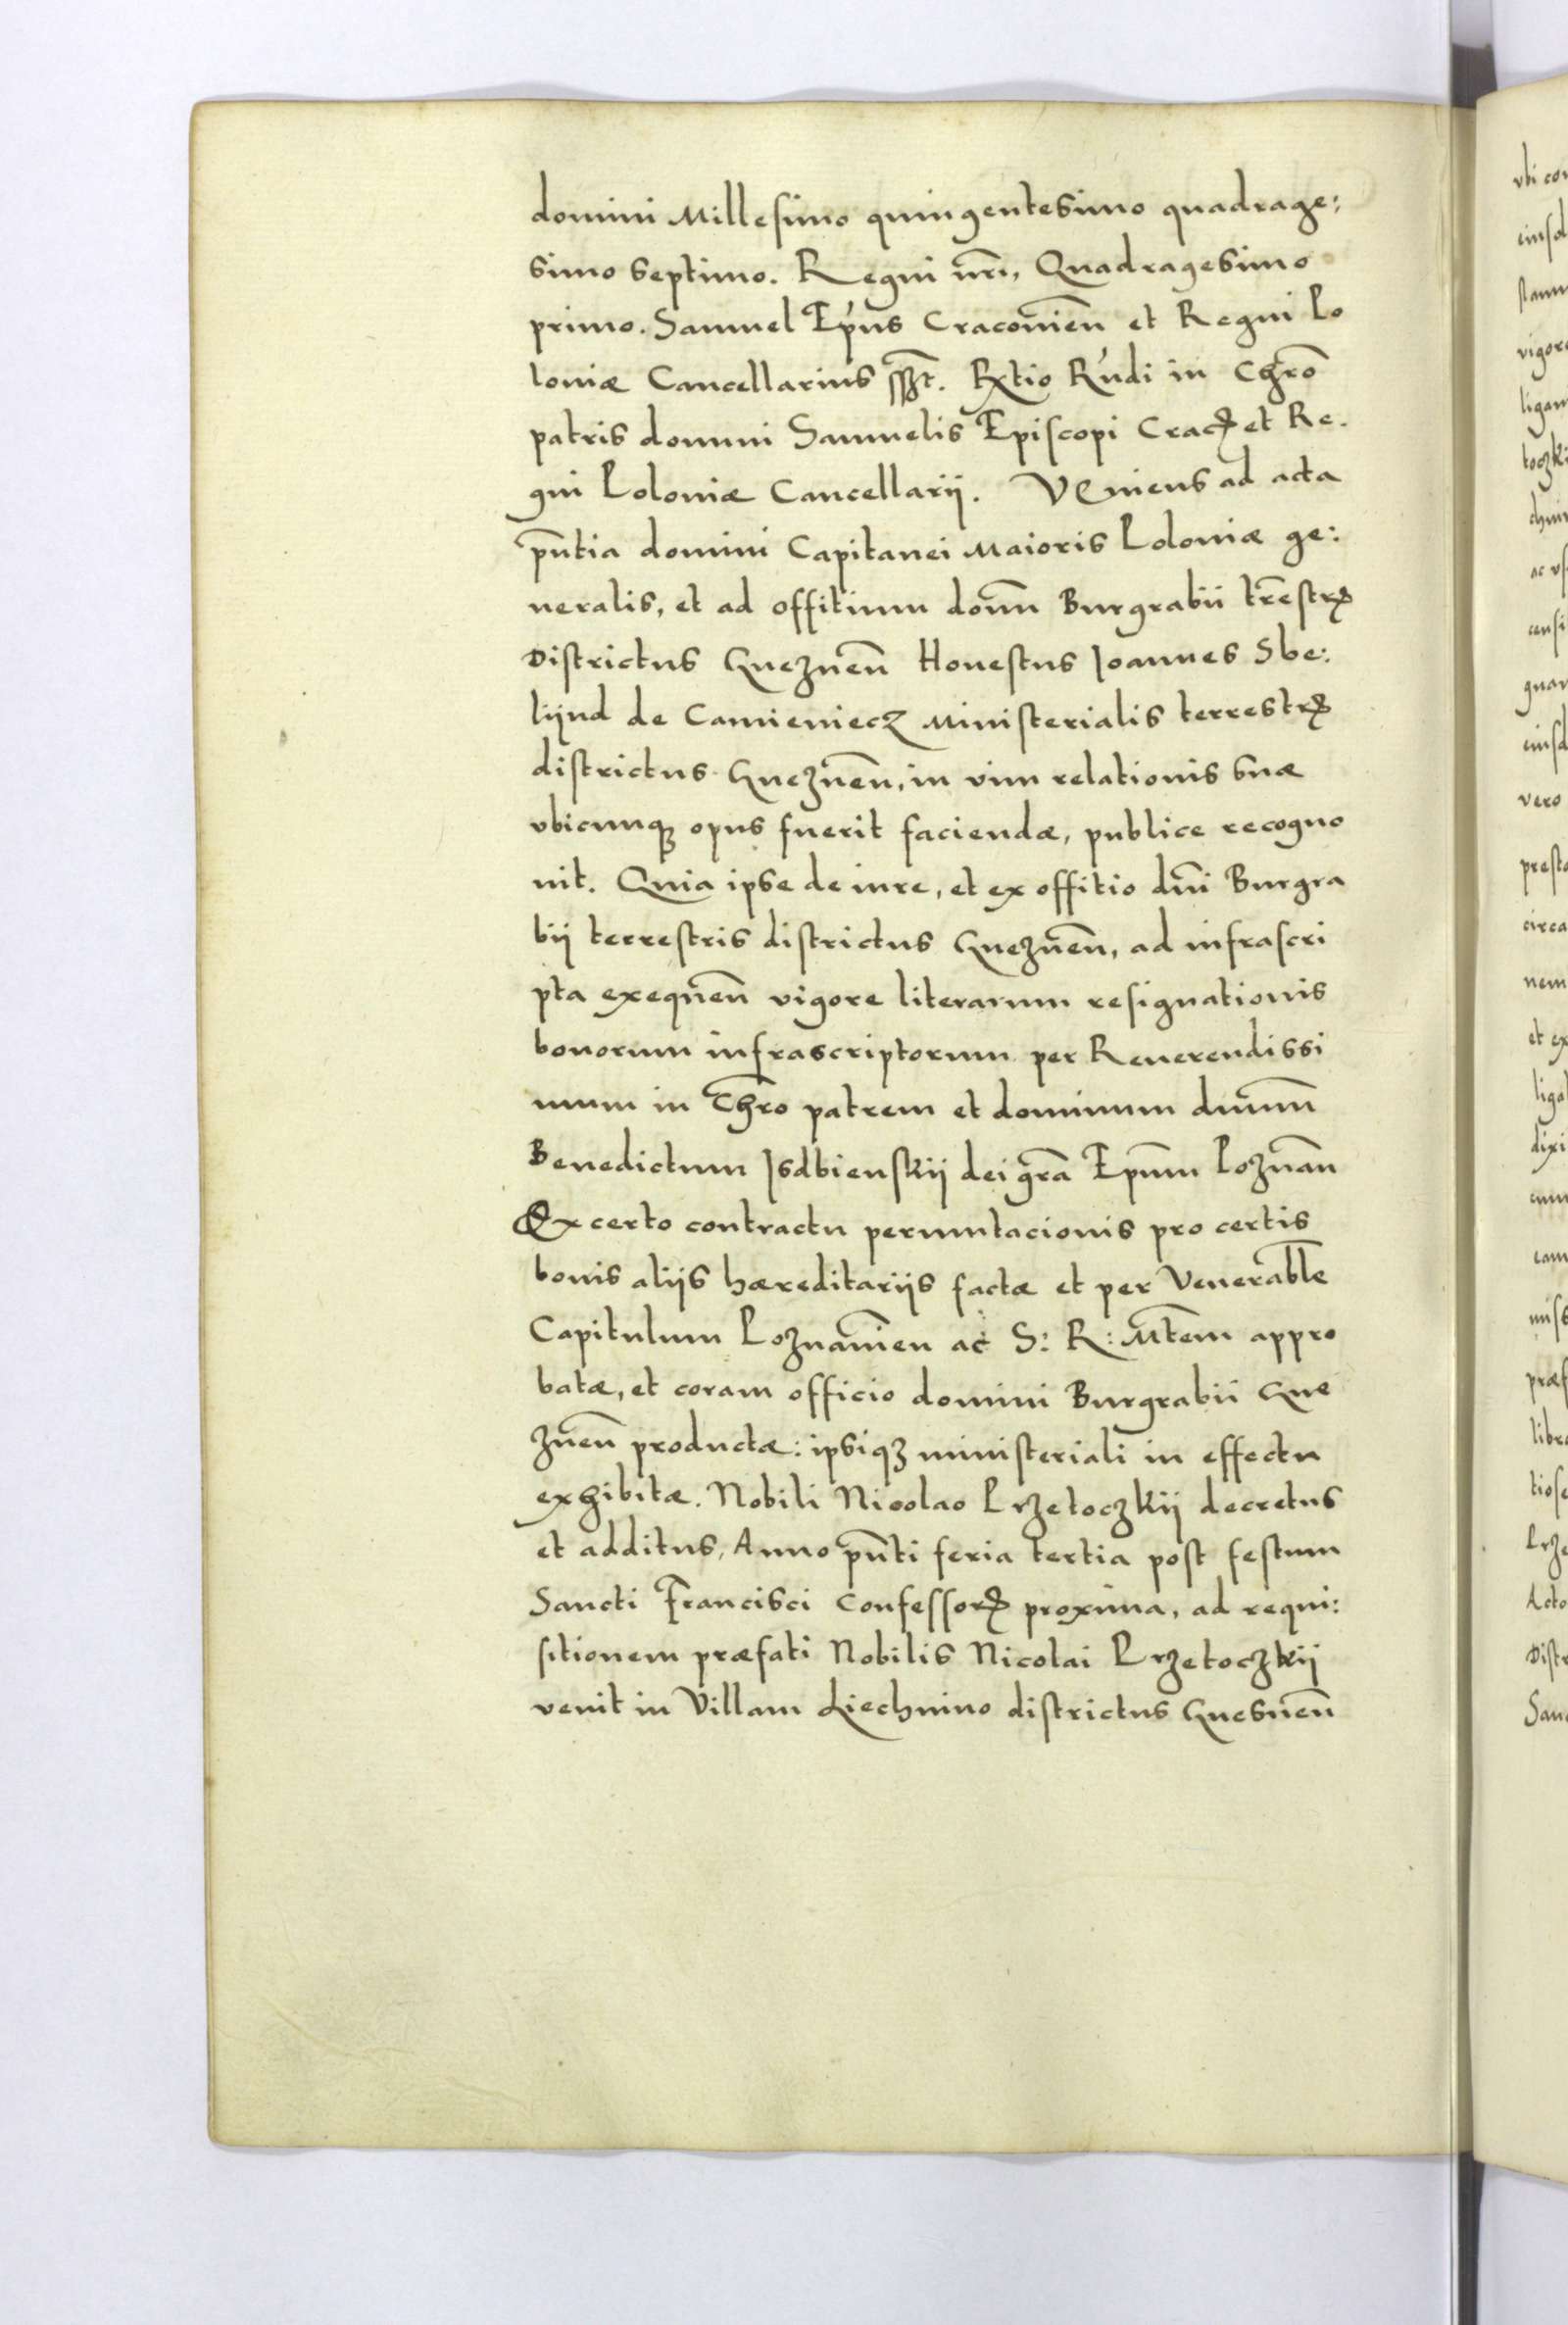 domini Millesimo quingentesimo quadrage:
simo septimo. Regni nr̃i, Quadragesimo
primo. Samuel Ep̃us Cracovien̄ et Regni Po
loniæ Cancellarius sszt. Rx̃tio Rñdi in Chr̃o
patris domini Samuelis Episcopi Crac̄ et Re.
gni Poloniæ Cancellarij. VEniens ad acta
pñtia domini Capitanei Maioris Poloniæ ge:
neralis, et ad offitium domñ Burgrabii tr̃estr̃
Districtus Gneznen̄ Honestus Joannes Sbe:
lijnd de Camieniecz Ministerialis terrestr̃
districtus Gneznen̄, in vim relationis suæ
vbicunq3 opus fuerit faciendæ, publice recogno
uit. Quia ipse de iure, et ex offitio dñi Burgra
bij terrestris districtus Gneznen̄, ad infrascri
pta exequen̄ vigore literarum resignationis
bonorum infrascriptorum per Reuerendissi
mum in Chr̃o patrem et dominum dñum
Benedictum Jsdbienskij dei gr̃a Ep̃um Poznan̄
Ex certo contractu permutacionis pro certis
bonis alijs hæreditarijs factæ et per Venerab̃le
Capitulum Poznanien̄ ac S: R: Mt̃em appro
batæ, et coram officio domini Burgrabii Gne
znen̄ productæ: ipsiq3 ministeriali in effectu
exhibitæ. Nobili Nicolao Przetoczkij decretus
et additus, Anno pñti feria tertia post festum
Sancti Francisci Confessor̃ proxima, ad requi:
sitionem præfati Nobilis Nicolai Przetoczkij
venit in Villam Liechnino districtus Gnesnen̄